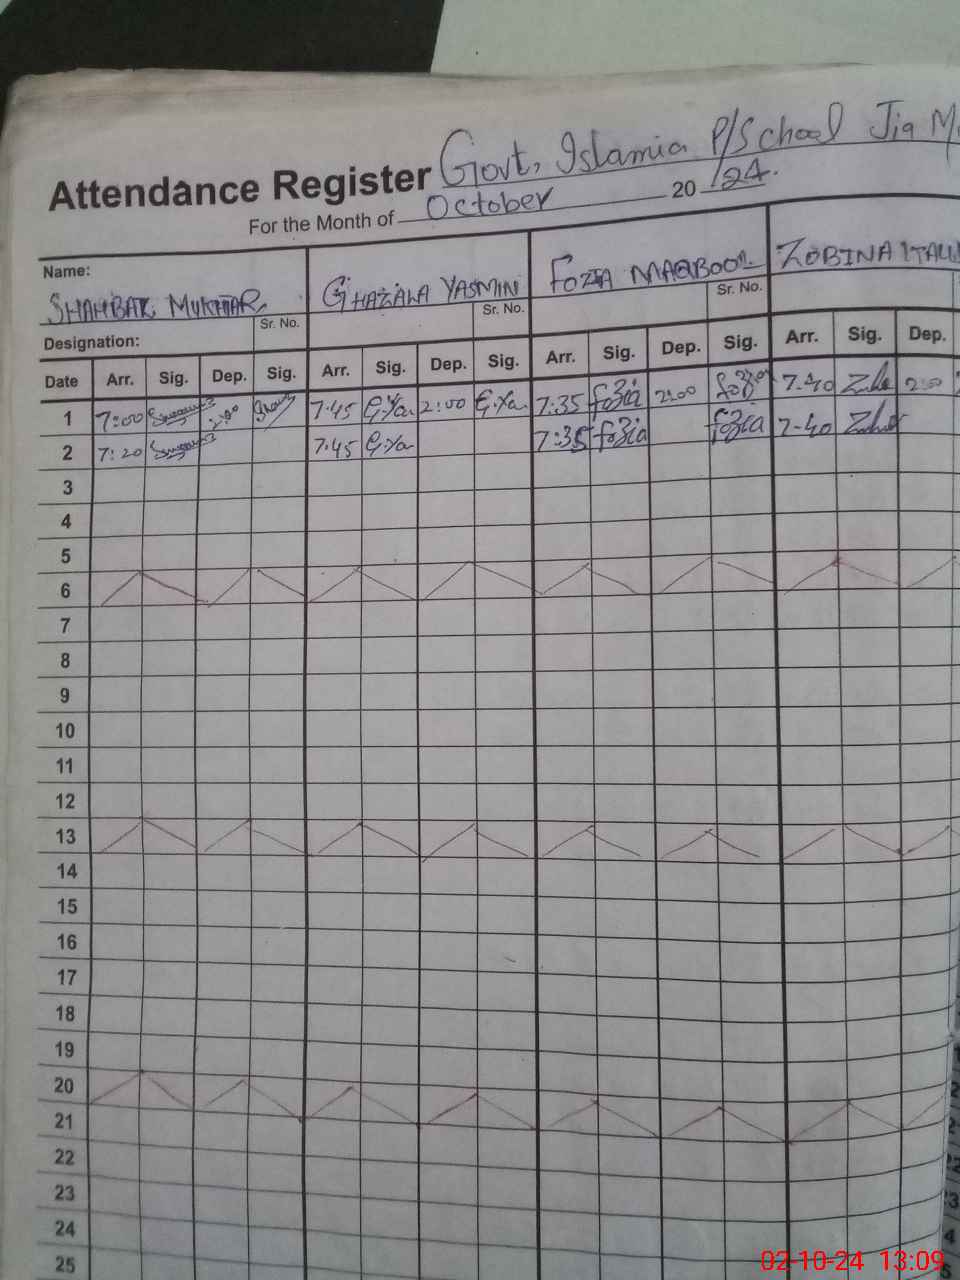 Govt, Islamia P/School Jia M
Attendance Register
For the Month of October 20 /24.
Name:
SHAHBAK MUKHTAR GHAZALA YASMIN FOZIA MAQBOOL ZOBINA
Sr. No. Sr. No. Sr. No.
Designation:
Date Arr. Sig. Dep. Sig. Arr. Sig. Dep. Sig. Arr. Sig. Dep. Sig. Arr. Sig. Dep.
1 7:00 2:00 7.45 G.Ya 2:00 G.Ya 7:35 fozia 2:00 fozia 7.40 2:00
2 7:20 7.45 G.Ya 7:35 fozia fozia 7-40
3
4
5
6
7
8
9
10
11
12
13
14
15
16
17
18
19
20
21
22
23
24
25
02-10-24 13:09